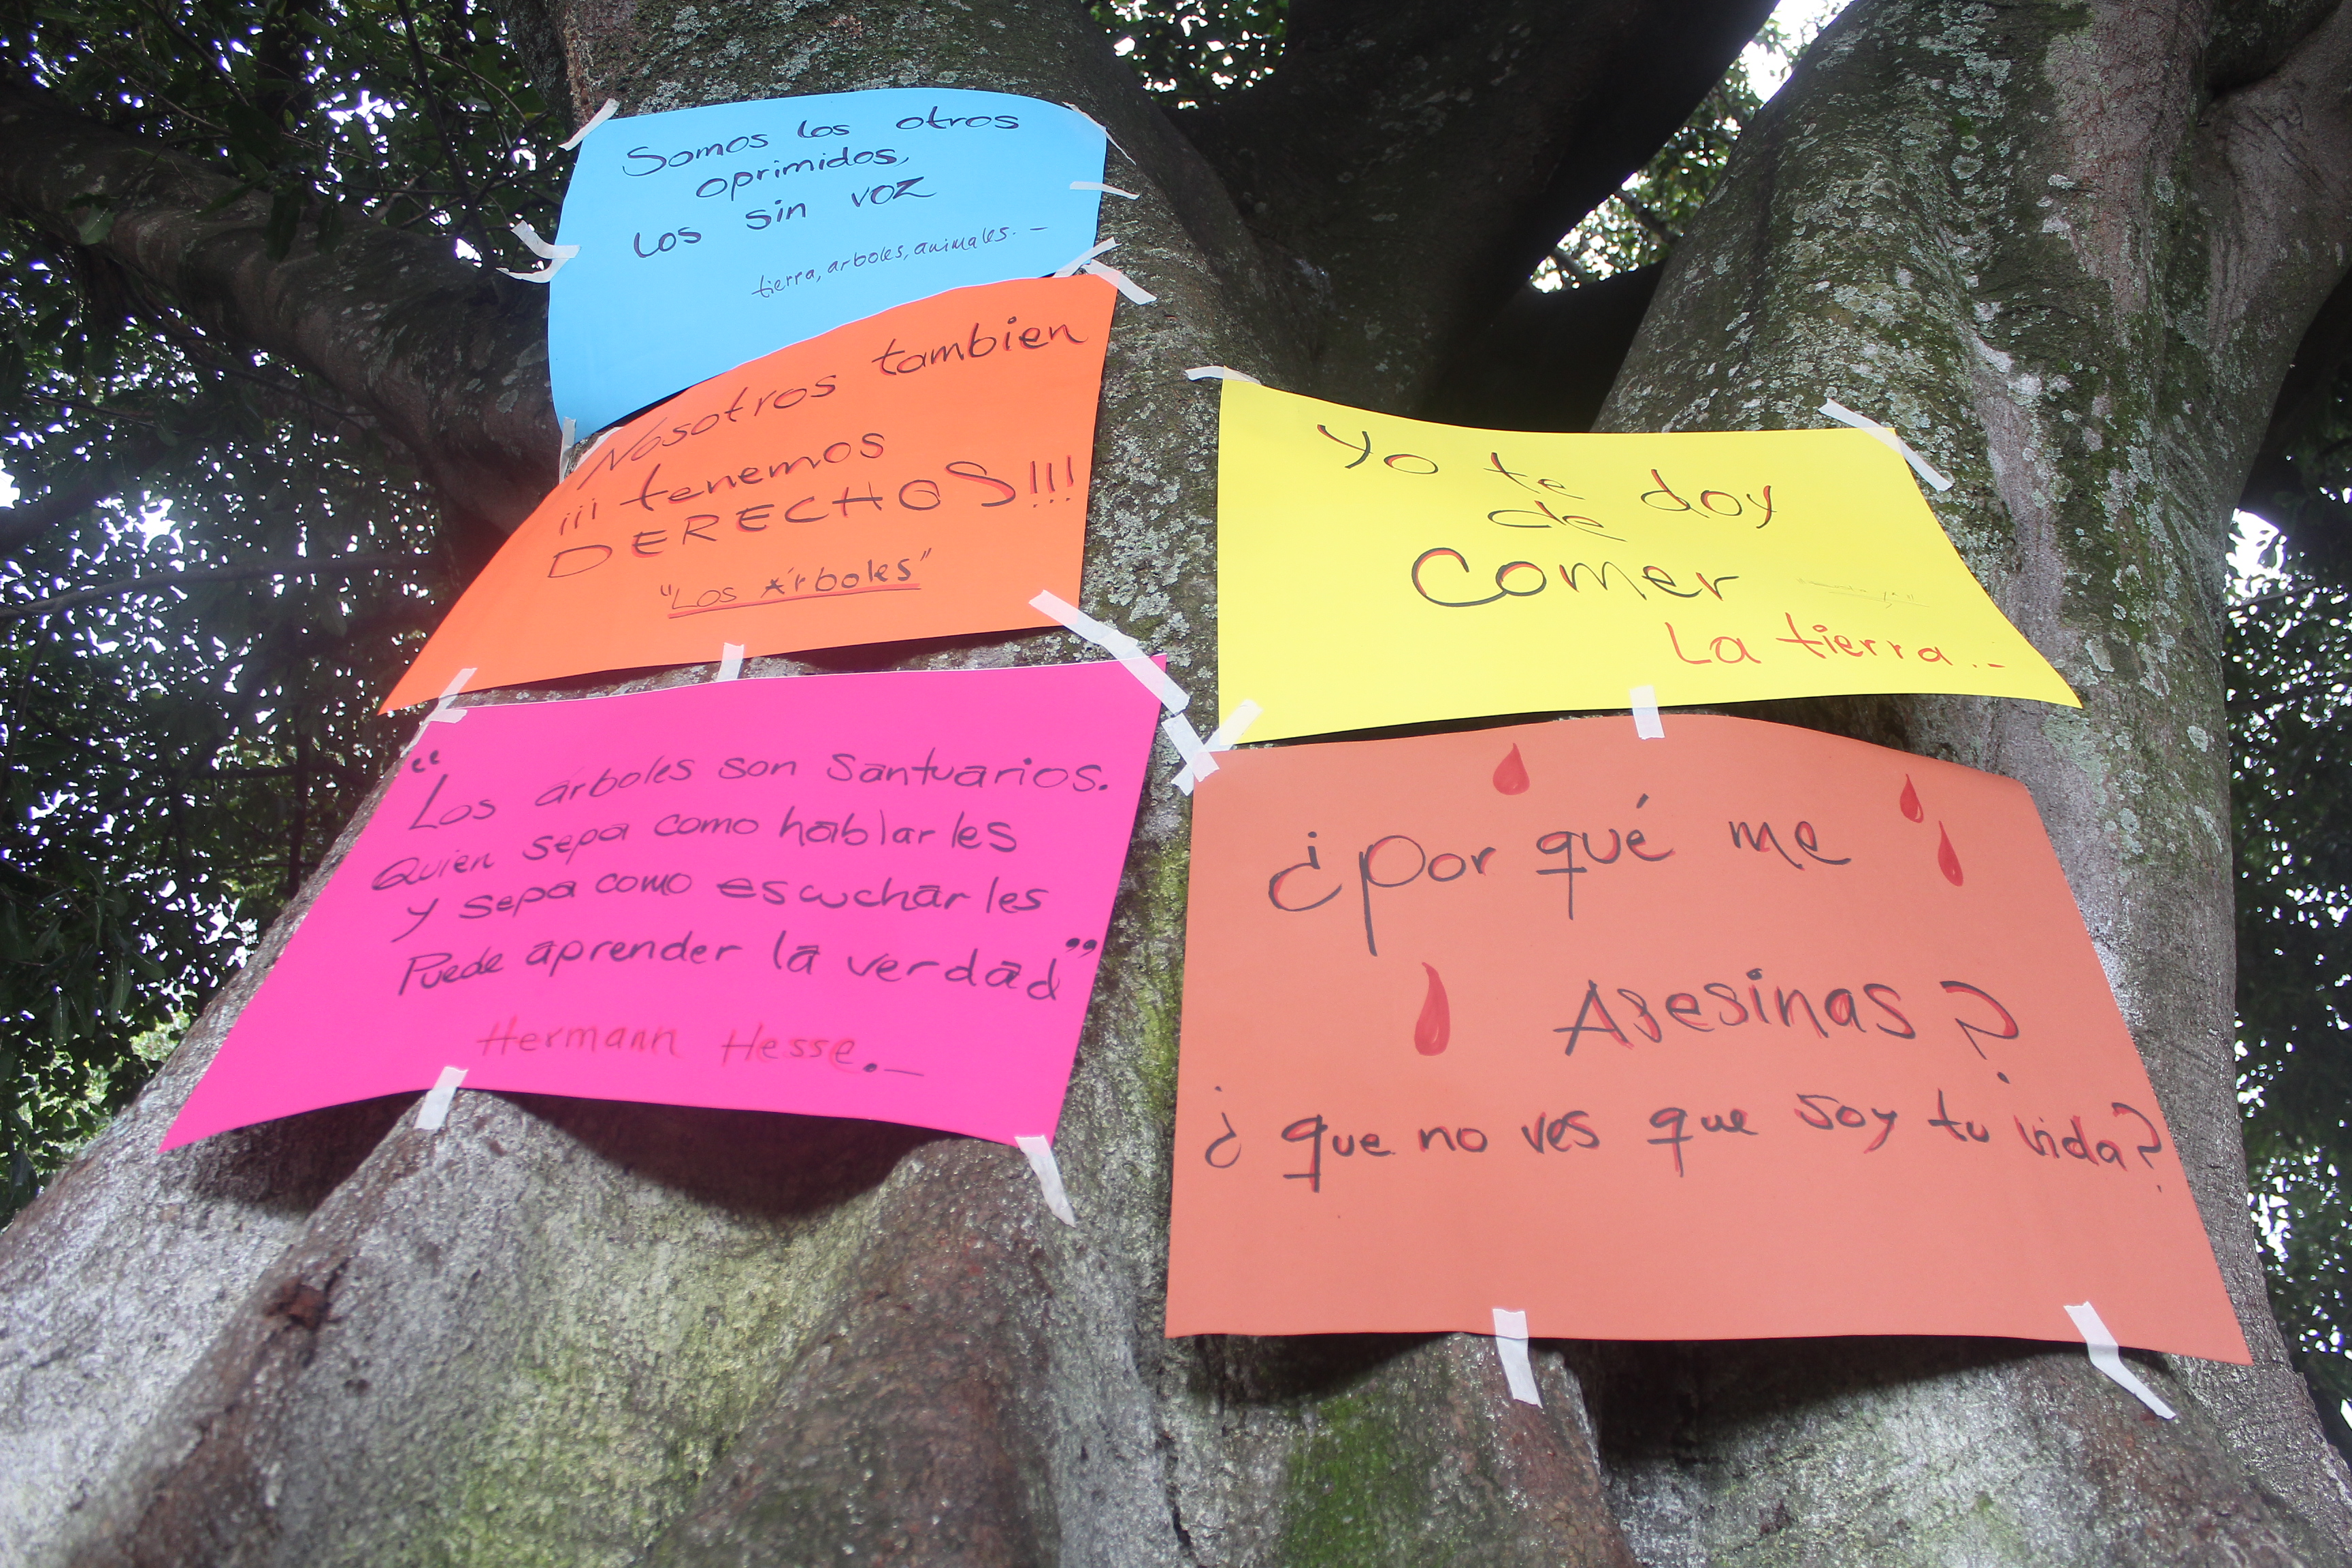 Somos los otros
oprimidos,
Los sin voz
tierra, arboles, animales.-
Nosotros tambien
¡¡¡ tenemos
DERECHOS!!!
"Los Árboles"
"Los árboles son santuarios.
Quien sepa como hablarles
y sepa como escucharles
Puede aprender la verdad"
Hermann Hesse.-
Yo te doy
de
Comer
La tierra.-
¿Por qué me
Asesinas?
¿que no ves que soy tu vida?